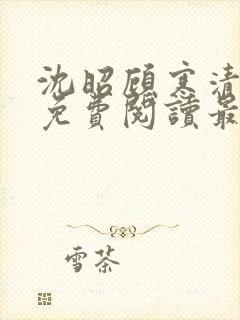 沈昭顾寒清
免費閱讀最
雪茶